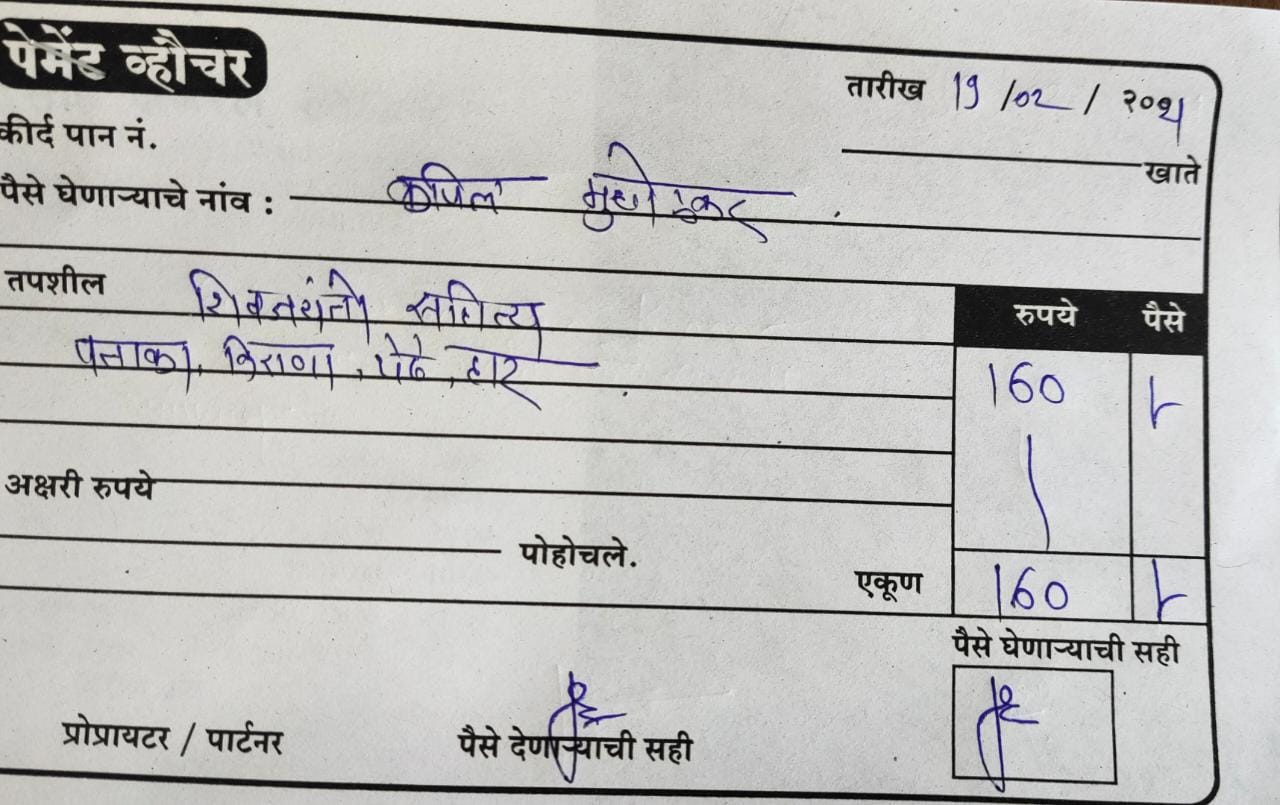 पेमेंट व्हौचर
तारीख 19 /02 / २०२1
कीर्द पान नं.
खाते
पैसे घेणाऱ्याचे नांव : कपिल
तपशील शिवजयंती सहित्य
रुपये पैसे
पताका, किराणा, पेढे, हार
160
अक्षरी रुपये
पोहोचले.
एकूण 160
पैसे घेणाऱ्याची सही
प्रोप्रायटर / पार्टनर पैसे देणाऱ्याची सही